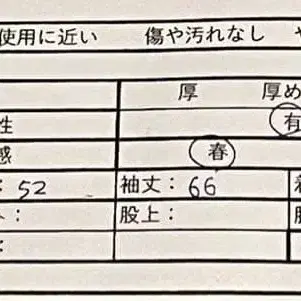 使用に近い 傷や汚れなし
厚 厚め
性 有
感 春
: 52 袖丈: 66
: 股上:
: